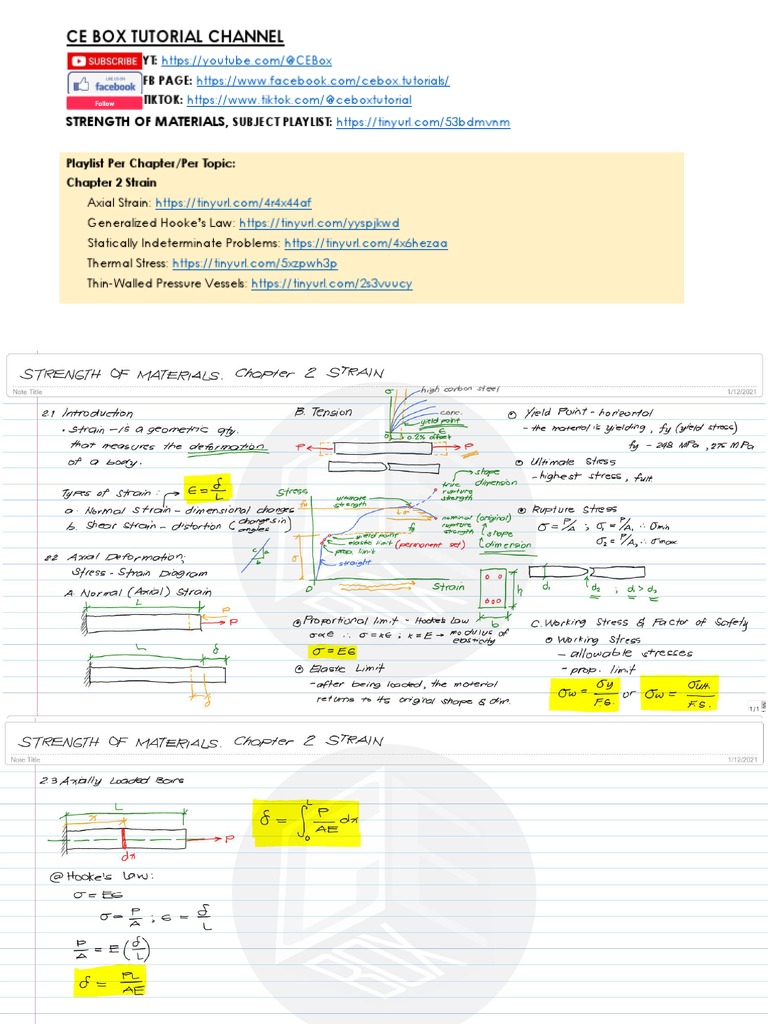 CE BOX TUTORIAL CHANNEL
SUBSCRIBE YT: https://youtube.com/@CEBox
LIKE US ON facebook FB PAGE: https://www.facebook.com/cebox.tutorials/
Follow TIKTOK: https://www.tiktok.com/@ceboxtutorial
STRENGTH OF MATERIALS, SUBJECT PLAYLIST: https://tinyurl.com/53bdmvnm
Playlist Per Chapter/Per Topic:
Chapter 2 Strain
Axial Strain: https://tinyurl.com/4r4x44af
Generalized Hooke's Law: https://tinyurl.com/yyspjkwd
Statically Indeterminate Problems: https://tinyurl.com/4x6hezaa
Thermal Stress: https://tinyurl.com/5xzpwh3p
Thin-Walled Pressure Vessels: https://tinyurl.com/2s3vuucy
STRENGTH OF MATERIALS. Chapter 2 STRAIN
Note Title
1/12/2021
2.1 Introduction
• Strain - is a geometric qty.
that measures the deformation
of a body.
Types of Strain: ε = δ/L
a. Normal Strain - dimensional changes
b. Shear Strain - distortion (changes in angles)
2.2 Axial Deformation;
Stress-Strain Diagram
A. Normal (Axial) Strain
L
P
L δ
δ
B. Tension
σ
high carbon steel
conc.
yield point
ε
0 0.2% offset
P P
Stress
ultimate strength
true rupture strength
slope dimension
nominal (original) rupture strength
dimension
yield point
elastic limit (permanent set)
prop. limit
straight
0
Strain
h
b
⊙ Proportional limit - Hooke's Law
σ∝ε ∴ σ = kε ; k = E → modulus of elasticity
σ = Eε
⊙ Elastic Limit
- after being loaded, the material
returns to its original shape & dim.
⊙ Yield Point - horizontal
- the material is yielding, fy (yield stress)
fy - 248 MPa, 275 MPa
⊙ Ultimate Stress
- highest stress, fult
⊙ Rupture Stress
σ = P/A ; σ₁ = P/A₁ ∴ σmin
σ₂ = P/A₂ ∴ σmax
d₁ d₂ ; d₁ > d₂
C. Working Stress & Factor of Safety
⊙ Working Stress
- allowable stresses
- prop. limit
σw = σy/F.S. or σw = σult/F.S.
1/1
STRENGTH OF MATERIALS. Chapter 2 STRAIN
Note Title
1/12/2021
2.3 Axially Loaded Bars
L
x
P
dx
δ = ∫₀ᴸ P/AE dx
@ Hooke's Law:
σ = Eε
σ = P/A ; ε = δ/L
P/A = E(δ/L)
δ = PL/AE